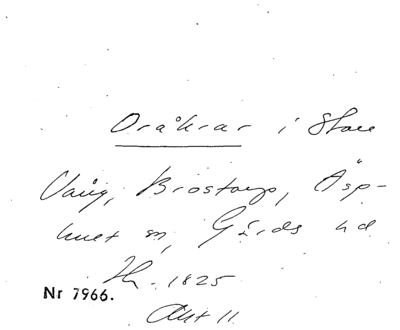 Oråkrar i Store
Vång, Brostorp, Äsp-
huet sn, Gärds hd
Hr. 1825
Nr 7966.
Akt 11.